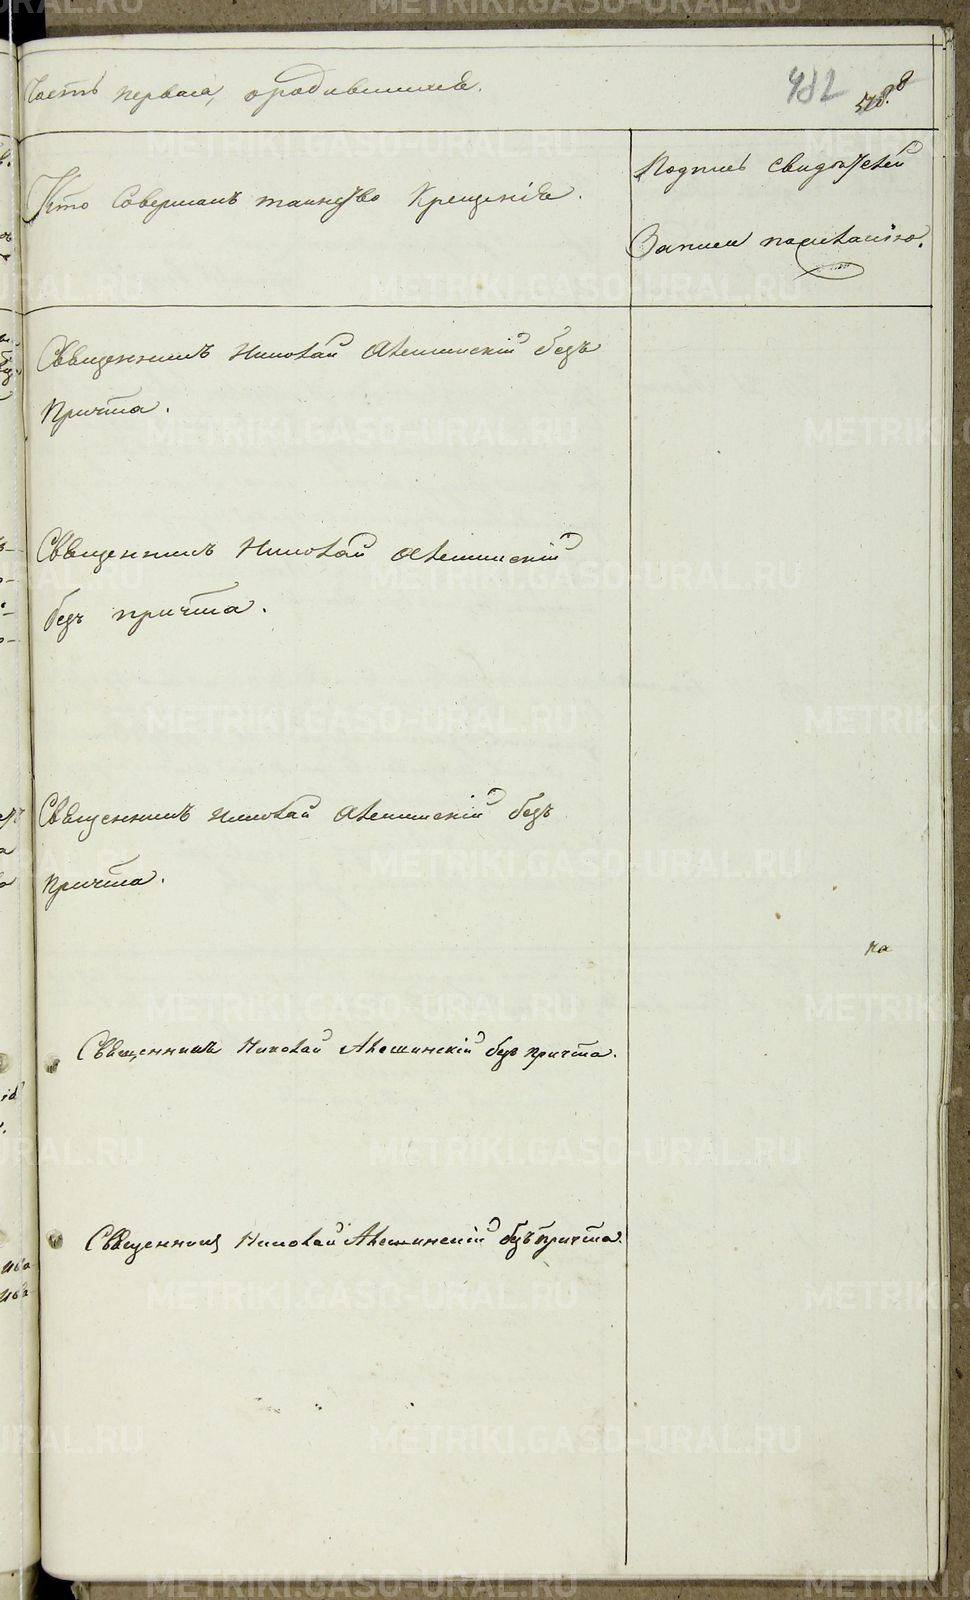 Часть первая, о родившихся.
482
578. 8
Кто Совершалъ таинство Крещенія.
Подпись свидѣтелей
Записи по желанію.
Священникъ Николай Алешинскій безъ
причта.
Священникъ Николай Алешинскій
безъ причта.
Священникъ Николай Алешинскій безъ
причта.
на
Священникъ Николай Алешинскій безъ причта.
Священникъ Николай Алешинскій безъ причта.
METRIKI.GASO-URAL.RU